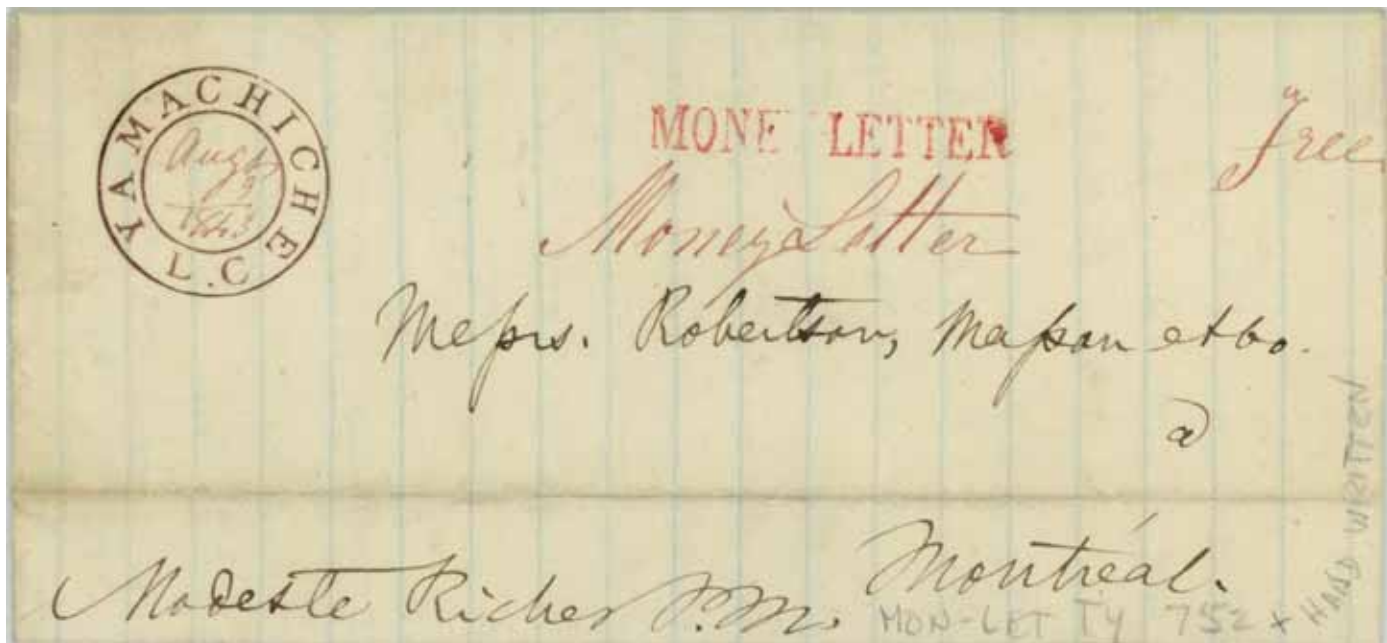 YAMACHICHE L.C
Augt
9
1843
MONE LETTER
Free
Money Letter
Messrs. Robertson, Masson et Co.
a
Montréal.
Modeste Richer P.M.
MON-LET TY 752 x HAND WRITTEN